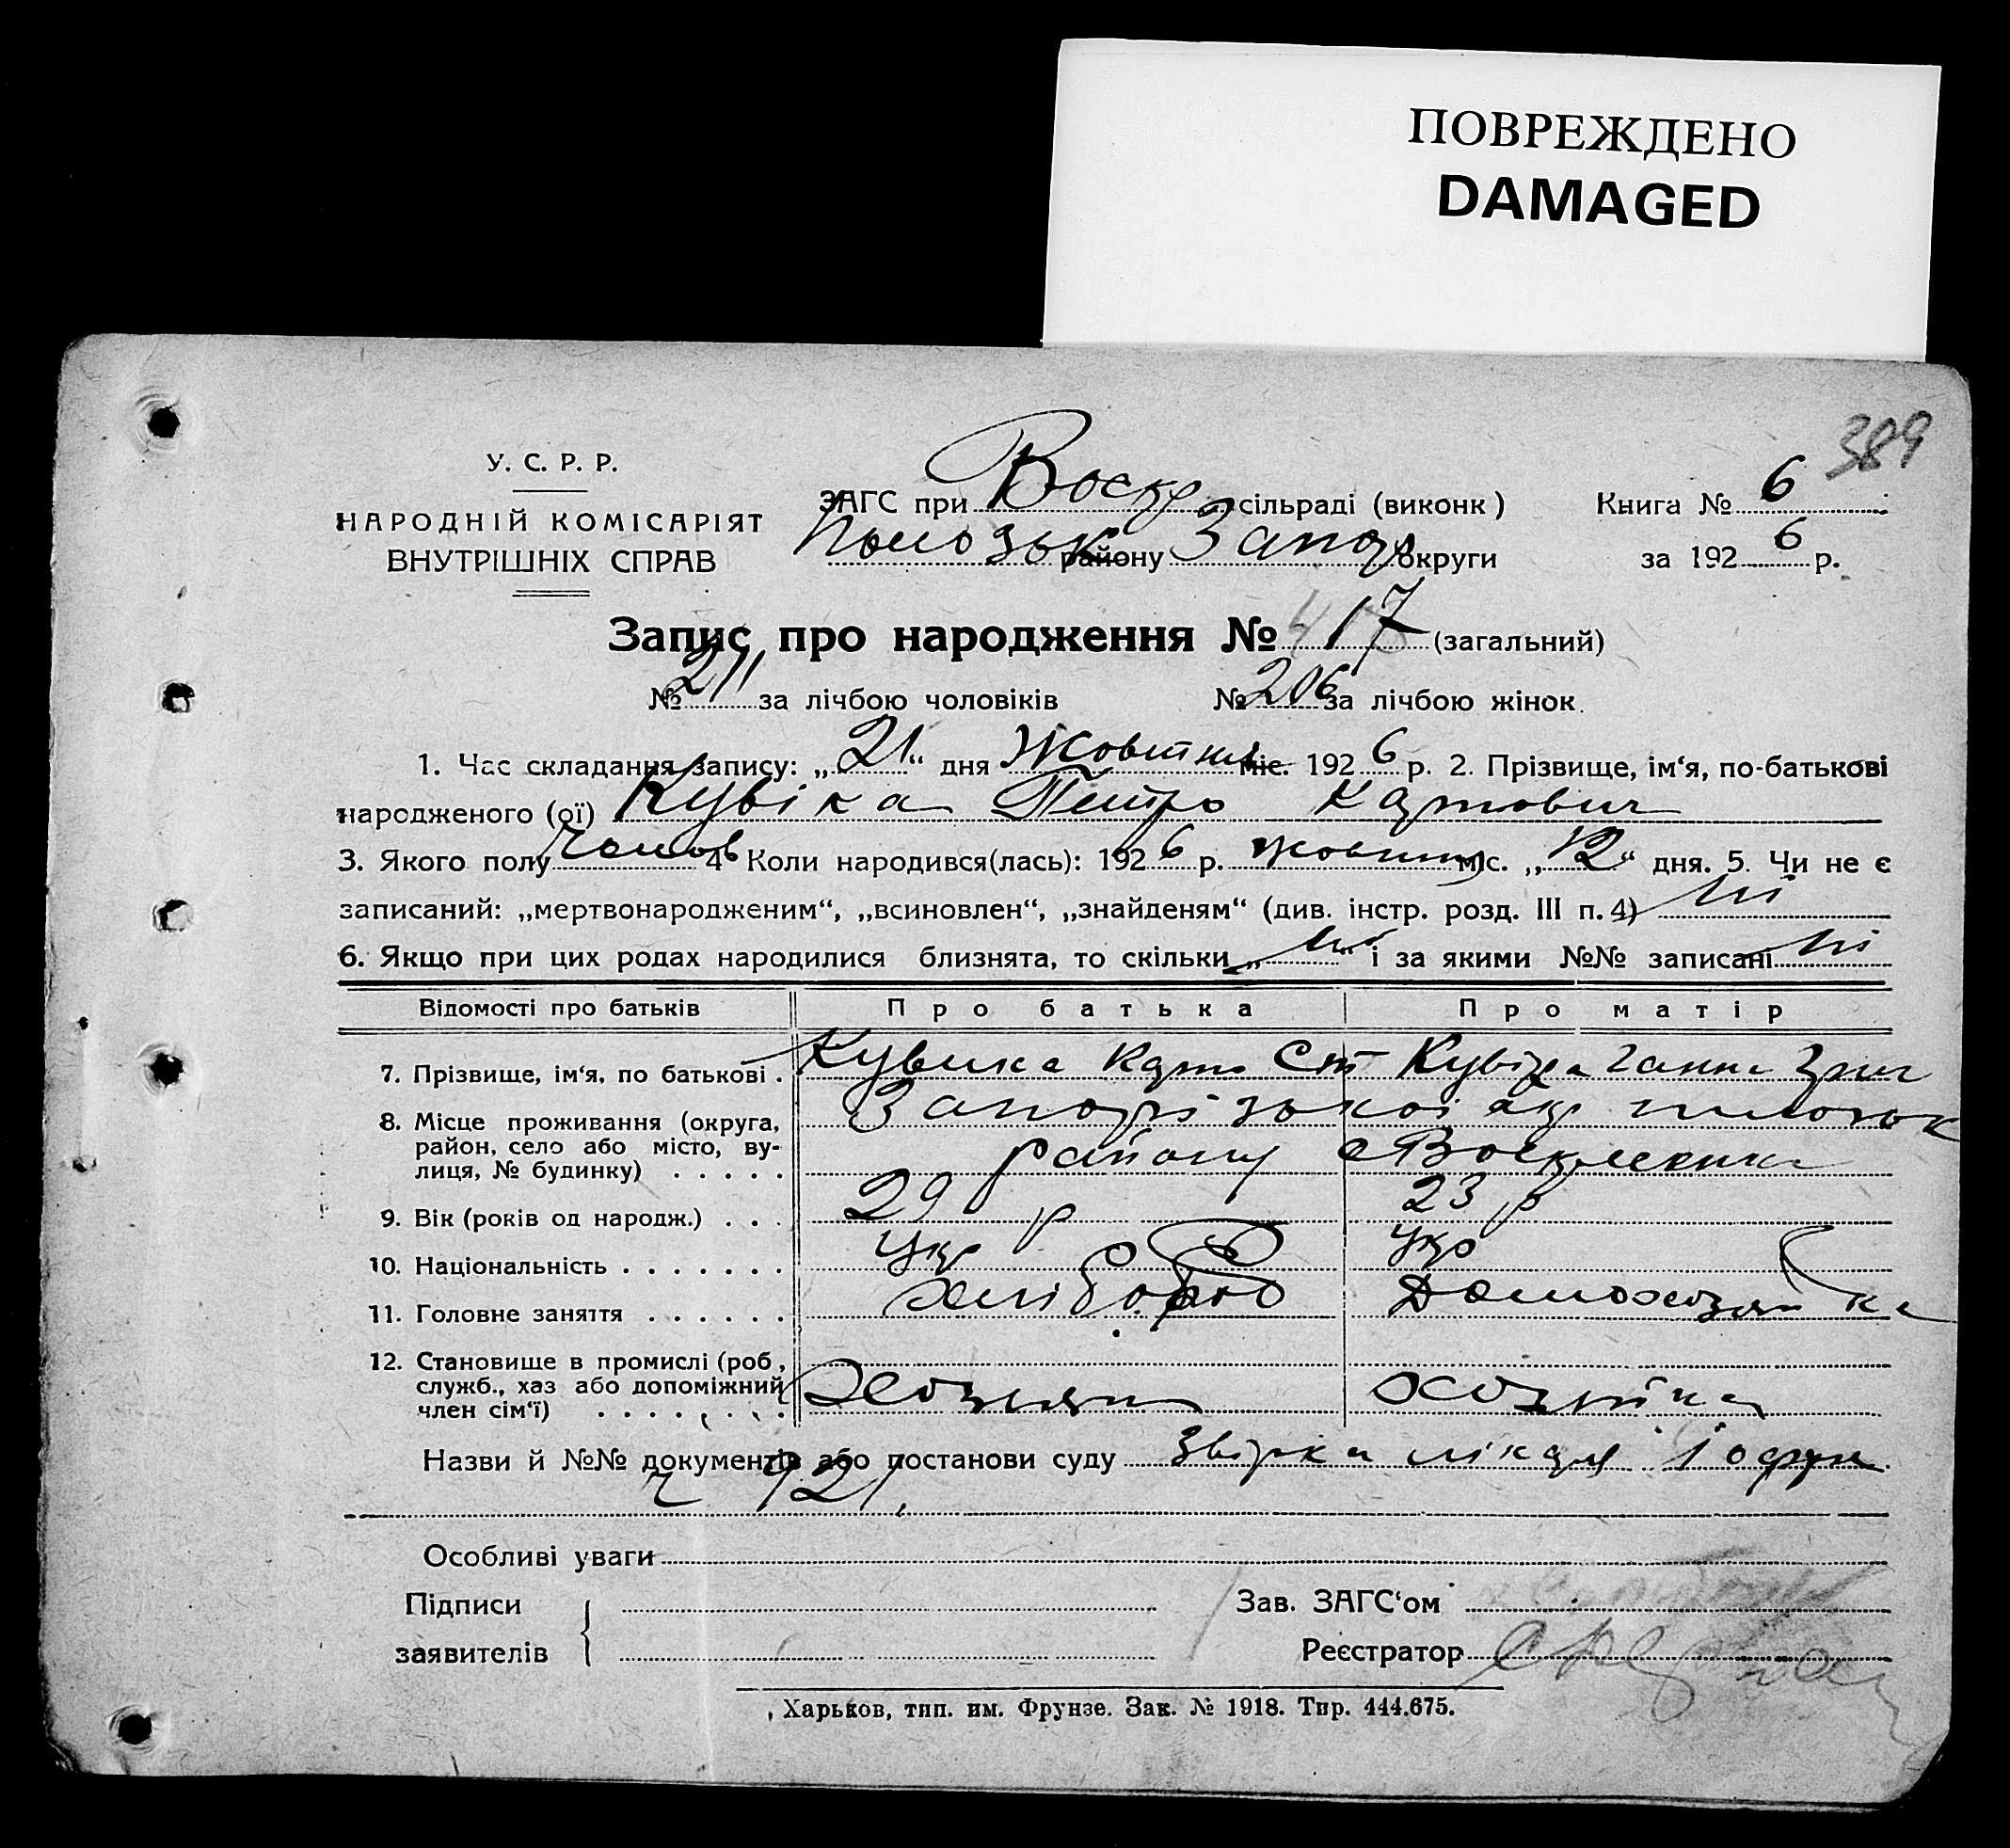 ПОВРЕЖДЕНО
DAMAGED
389
У. С. Р. Р.
НАРОДНІЙ КОМІСАРІЯТ
ВНУТРІШНІХ СПРАВ
ЗАГС при Воскр сільраді (виконк)
району Запор округи
Книга № 6
за 1926 р.
Запис про народження № 417 (загальний)
№ 211 за лічбою чоловіків № 206 за лічбою жінок
1. Час складання запису: „21“ дня Жовтня міс. 1926 р. 2. Прізвище, ім‘я, по-батькові
народженого (ої) Кувіка Петро Карпович
3. Якого полу Чолов 4 Коли народився(лась): 1926 р. жовтня міс. „12“ дня. 5. Чи не є
записаний: „мертвонародженим“, „всиновлен“, „знайденям“ (див. інстр. розд. III п. 4) ні
6. Якщо при цих родах народилися близнята, то скільки „ні“ і за якими №№ записані ні
Відомості про батьків Про батька Про матір
7. Прізвище, ім‘я, по батькові . Кувика Карпо Ст Кувіка Ганна
8. Місце проживання (округа, Запорізької окр
район, село або місто, ву- району с Воскресенка
лиця, № будинку) . . . . .
9. Вік (років од народж.) . . . 29 р 23 р
10. Національність . . . . . . . укр укр
11. Головне заняття . . . . . . хлібороб Домохозяйка
12. Становище в промислі (роб,
служб., хаз або допоміжний Хозяин хозяйка
член сім‘ї) . . . . . . . .
Назви й №№ документів або постанови суду
ч 921
Особливі уваги
Підписи
заявителів
Зав. ЗАГС‘ом
Реєстратор
Харьков, тип. им. Фрунзе. Зак. № 1918. Тир. 444.675.